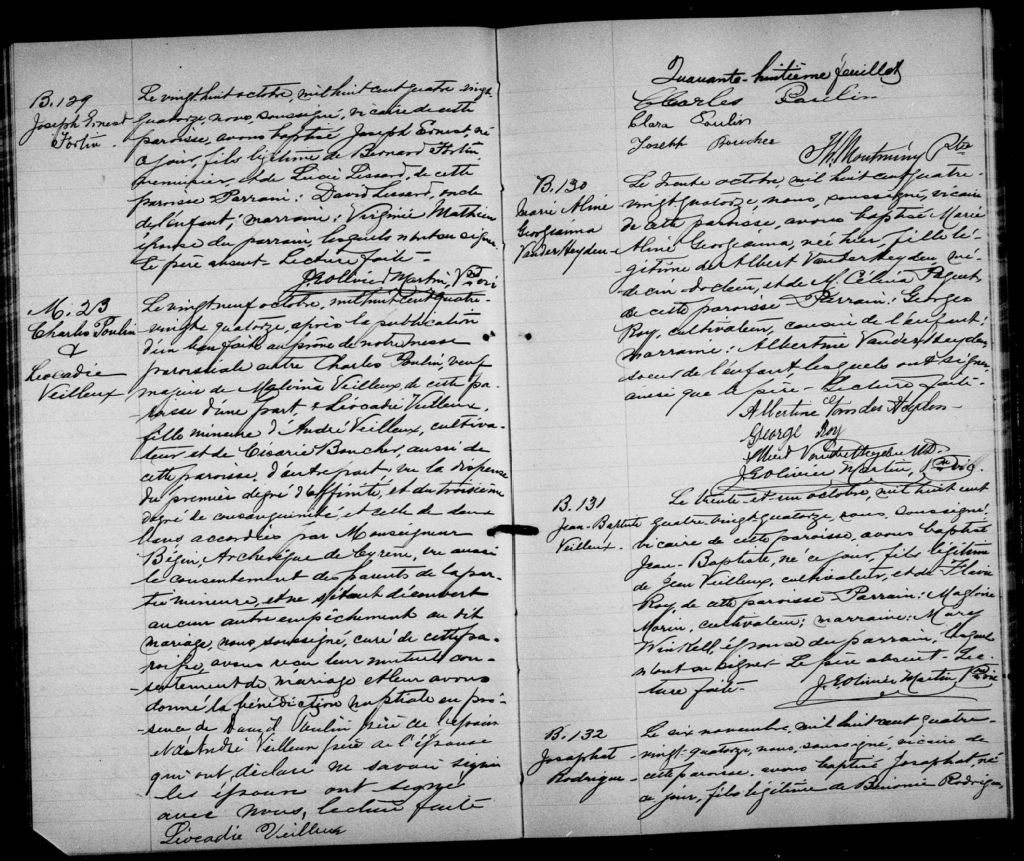 B. 129
Joseph Ernest
Fortin.
Le vingt huit octobre, mil huit cent quatre vingt
quatorze, nous, soussigné, vicaire de cette
paroisse, avons baptisé Joseph Ernest, né
ce jour, fils légitime de Bernard Fortin,
menuisier, et de Lucie Lessard, de cette
paroisse Parrain: David Lessard, oncle
de l'enfant; marraine: Virginie Mathieu
épouse du parrain, lesquels n'ont su signer
Le père absent - Lecture faite -
J. E. Olivier Martin, Ptre Vic
M. 23
Charles Poulin
&
Léocadie
Veilleux
Le vingt neuf octobre, mil huit cent quatre-
vingt quatorze, après la publication
d'un ban faite au prône de notre messe
paroissiale entre Charles Poulin, veuf
majeur de Malvina Veilleux de cette pa-
roisse d'une part, & Léocadie Veilleux,
fille mineure d'André Veilleux, cultiva-
teur et de Césarie Boucher, aussi de
cette paroisse, d'autre part, vu la dispense
du premier degré d'affinité, et du troisième
degré de consanguinité, et celle de deux
bans accordées par Monseigneur
Bégin, Archevêque de Cyrène, vu aussi
le consentement des parents de la par-
tie mineure, et ne s'étant découvert
aucun autre empêchement au dit
mariage, nous, soussigné, curé de cette pa-
roisse, avons reçu leur mutuel con-
sentement de mariage et leur avons
donné la bénédiction nuptiale en pré-
sence de David Poulin frère de l'époux
et d'André Veilleux père de l'épouse
qui ont déclaré ne savoir signer
les époux ont signé
avec nous, lecture faite
Léocadie Veilleux
Quarante-huitième feuillet
Charles Poulin
Clara Poulin
Joseph Boucher
Th. Montminy Ptre
B. 130
Marie Aline
Georgianna
VanderHeyden
Le trente octobre, mil huit cent quatre-
vingt quatorze, nous, soussigné, vicaire
de cette paroisse, avons baptisé Marie
Aline Georgianna, née hier, fille lé-
gitime de Albert VanderHeyden mé-
decin-docteur, et de M. Célina Paquet
de cette paroisse - Parrain: Georges
Roy, cultivateur, cousin de l'enfant;
marraine: Albertine VanderHeyden
soeur de l'enfant lesquels ont signé
ainsi que le père - Lecture faite -
Albertine
George Roy
J. E. Olivier Martin, Ptre Vic.
B. 131
Jean-Baptiste
Veilleux.
Le trente-et-un octobre, mil huit cent
quatre-vingt quatorze, nous, soussigné,
vicaire de cette paroisse, avons baptisé
Jean-Baptiste, né ce jour, fils légitime
de Jean Veilleux, cultivateur, et de Flavie
Roy, de cette paroisse Parrain: Magloire
Morin, cultivateur; marraine: Mary
épouse du parrain, lesquels
n'ont su signer - Le père absent - Lec-
ture faite -
J. E. Olivier Martin Ptre Vic
B. 132
Josaphat
Rodrigue
Le six novembre, mil huit cent quatre-
vingt-quatorze, nous, soussigné, vicaire de
cette paroisse, avons baptisé Josaphat, né
ce jour, fils légitime de Bénonie Rodrigue,